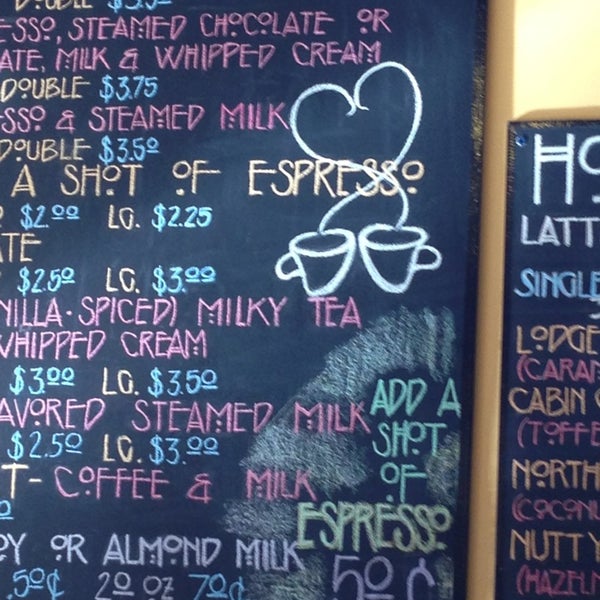 DOUBLE
STEAMED CHOCOLATE OR
MILK & WHIPPED CREAM
DOUBLE $3.75
& STEAMED MILK
DOUBLE $3.50
A SHOT OF ESPRESSO
$2.00 LG. $2.25
$2.50 LG. $3.00
SPICED) MILKY TEA
WHIPPED CREAM
$3.00 LG. $3.50
STEAMED MILK
$2.50 LG. $3.00
COFFEE & MILK
OR ALMOND MILK
.50¢ 20 OZ 70¢
ADD A
SHOT
OF
ESPRESSO
50¢
HO
LATT
SINGLE
LODGE
(CARAM
CABIN
(TOFFE
NORTH
(COCONU
NUTTY
(HAZELN